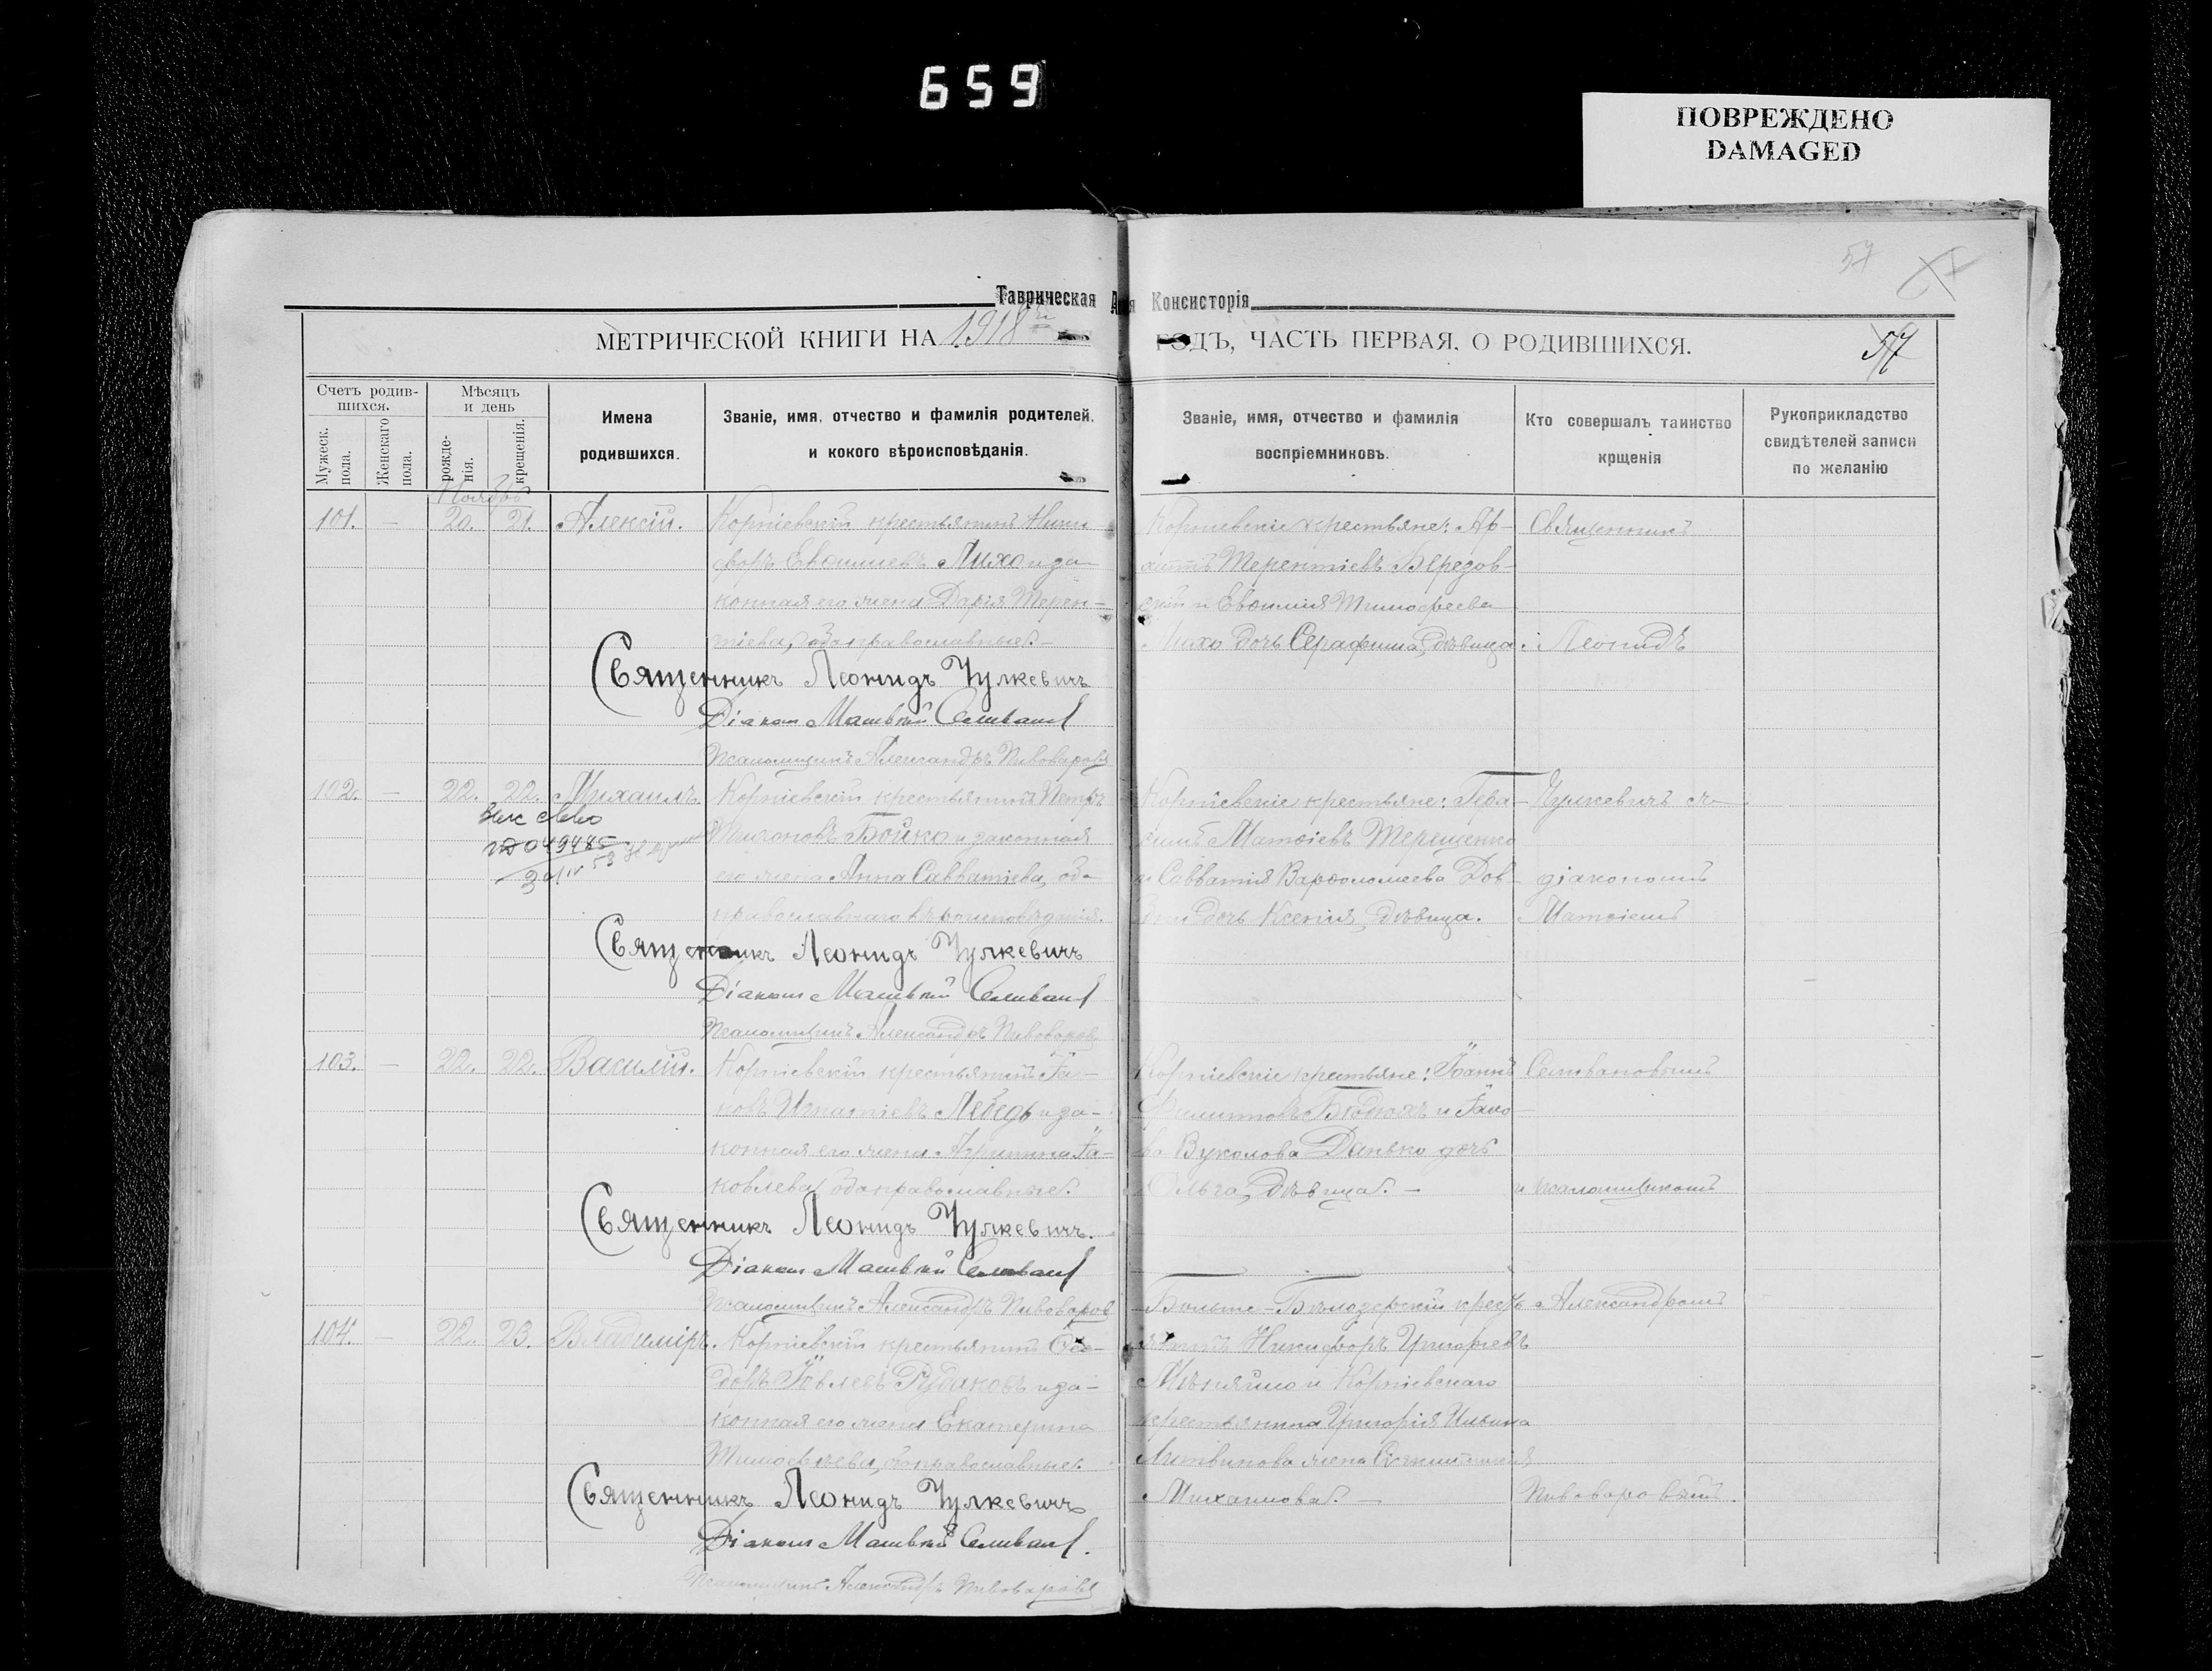 659
ПОВРЕЖДЕНО
DAMAGED
57
Таврическая Консисторія
МЕТРИЧЕСКОЙ КНИГИ НА 1918 ГОДЪ, ЧАСТЬ ПЕРВАЯ, О РОДИВШИХСЯ.
57
Счетъ родив-
шихся.
Мужеск.
пола.
Женскаго
пола.
Мѣсяцъ
и день
рожде-
нія.
крещенія.
Имена
родившихся.
Званіе, имя, отчество и фамилія родителей,
и кокого вѣроисповѣданія.
Званіе, имя, отчество и фамилія
воспріемниковъ.
Кто совершалъ таинство
крщенія
Рукоприкладство
свидѣтелей записи
по желанію
Ноябрь
101. — 20. 21. Алексій.
Корніевскій крестьянинъ Ники-
форъ Евѳиміевъ Лихо и за-
конная его жена Дарія Терен-
тіева, оба православные.
Корніевскіе крестьяне:
Терентіевъ Бередов-
скій и Евѳимія Тимофеева
Лихо дочь Серафима, дѣвица.
Священникъ
Леонидъ
Священникъ Леонидъ Чулкевичъ
Діаконъ Матвѣй Селиванов
Псаломщикъ Александръ Пивоваровъ
102. — 22. 22. Михаилъ.
049485
Корніевскій крестьянинъ Петръ
Бойко и законная
его жена Анна Савватіева, оба
православнаго вѣроисповѣданія.
Корніевскіе крестьяне: Гера-
симъ Матѳіевъ Терещенко
и Савватія Варѳоломеева Дов-
дочь Ксенія, дѣвица.
Чулкевичъ съ
діакономъ
Матѳіемъ
Священникъ Леонидъ Чулкевичъ
Діаконъ Матвѣй Селиванов
Псаломщикъ Александръ Пивоваровъ
103. — 22. 22. Василій.
Корніевскій крестьянинъ Іа-
ковъ Игнатіевъ Лебедь и за-
конная его жена Агрипина Іа-
ковлева, оба православные.
Корніевскіе крестьяне: Іоаннъ
Филипповъ и Іако-
ва Вуколова Данько дочь
Ольга, дѣвица. —
Селивановымъ
и псаломщикомъ
Священникъ Леонидъ Чулкевичъ.
Діаконъ Матвѣй Селиванов
Псаломщикъ Александръ Пивоваров
104. — 22. 23. Владиміръ.
Корніевскій крестьянинъ Ѳео-
доръ Рудаковъ и за-
конная его жена Екатерина
Тимоѳеева, оба православные.
Больше-Бѣлозерскій кресть-
янинъ Никифоръ Григорьевъ
и Корніевскаго
крестьянина Григорія Ильина
Литвинова жена
Михаилова. —
Александромъ
Пивоваровымъ.
Священникъ Леонидъ Чулкевичъ
Діаконъ Матвѣй Селиванов.
Псаломщикъ Александръ Пивоваровъ